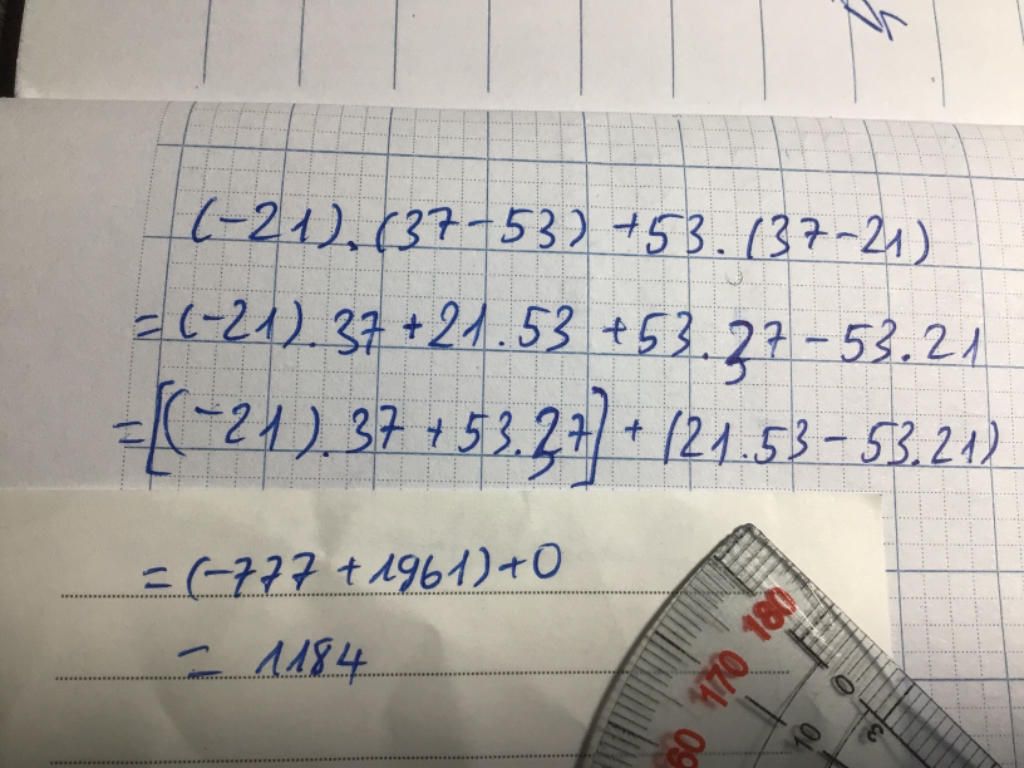 (-21).(37-53) +53.(37-21)
=(-21).37+21.53 +53.37-53.21
=[(-21).37+53.37]+(21.53-53.21)
=(-777+1961)+0
= 1184
180
170
60
0
10
3